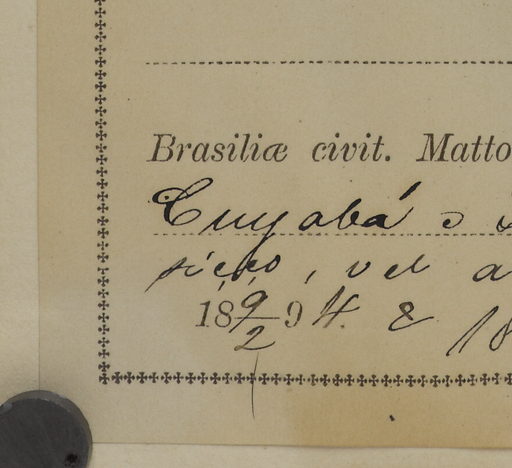 Brasiliæ civit. Matto
Cuyabá
vel a
18 9/2 94. & 18